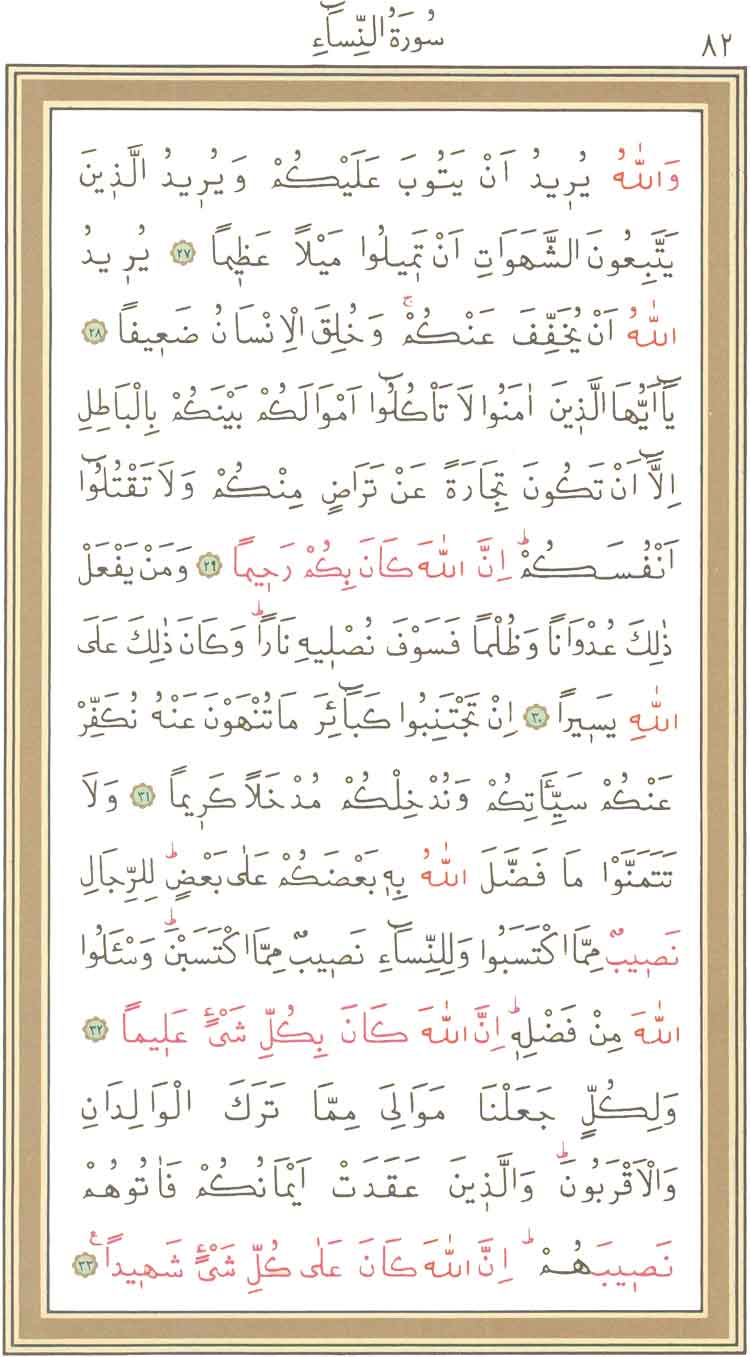 سُورَةُ النِّسَٓاءِ
٨٢
وَاللّٰهُ يُر۪يدُ اَنْ يَتُوبَ عَلَيْكُمْ وَيُر۪يدُ الَّذ۪ينَ
يَتَّبِعُونَ الشَّهَوَاتِ اَنْ تَم۪يلُوا مَيْلاً عَظ۪يماً ﴿٢٧﴾ يُر۪يدُ
اللّٰهُ اَنْ يُخَفِّفَ عَنْكُمْۚ وَخُلِقَ الْاِنْسَانُ ضَع۪يفاً ﴿٢٨﴾
يَٓا اَيُّهَا الَّذ۪ينَ اٰمَنُوا لَا تَأْكُلُٓوا اَمْوَالَكُمْ بَيْنَكُمْ بِالْبَاطِلِ
اِلَّٓا اَنْ تَكُونَ تِجَارَةً عَنْ تَرَاضٍ مِنْكُمْ وَلَا تَقْتُلُٓوا
اَنْفُسَكُمْۜ اِنَّ اللّٰهَ كَانَ بِكُمْ رَح۪يماً ﴿٢٩﴾ وَمَنْ يَفْعَلْ
ذٰلِكَ عُدْوَاناً وَظُلْماً فَسَوْفَ نُصْل۪يهِ نَاراًۜ وَكَانَ ذٰلِكَ عَلَى
اللّٰهِ يَس۪يراً ﴿٣٠﴾ اِنْ تَجْتَنِبُوا كَبَٓائِرَ مَا تُنْهَوْنَ عَنْهُ نُكَفِّرْ
عَنْكُمْ سَيِّـَٔاتِكُمْ وَنُدْخِلْكُمْ مُدْخَلاً كَر۪يماً ﴿٣١﴾ وَلَا
تَتَمَنَّوْا مَا فَضَّلَ اللّٰهُ بِه۪ بَعْضَكُمْ عَلٰى بَعْضٍۜ لِلرِّجَالِ
نَص۪يبٌ مِمَّا اكْتَسَبُوا وَلِلنِّسَٓاءِ نَص۪يبٌ مِمَّا اكْتَسَبْنَۜ وَسْـَٔلُوا
اللّٰهَ مِنْ فَضْلِه۪ۜ اِنَّ اللّٰهَ كَانَ بِكُلِّ شَيْءٍ عَل۪يماً ﴿٣٢﴾
وَلِكُلٍّ جَعَلْنَا مَوَالِيَ مِمَّا تَرَكَ الْوَالِدَانِ
وَالْاَقْرَبُونَۜ وَالَّذ۪ينَ عَقَدَتْ اَيْمَانُكُمْ فَاٰتُوهُمْ
نَص۪يبَهُمْۜ اِنَّ اللّٰهَ كَانَ عَلٰى كُلِّ شَيْءٍ شَه۪يداًۚ ع ﴿٣٣﴾